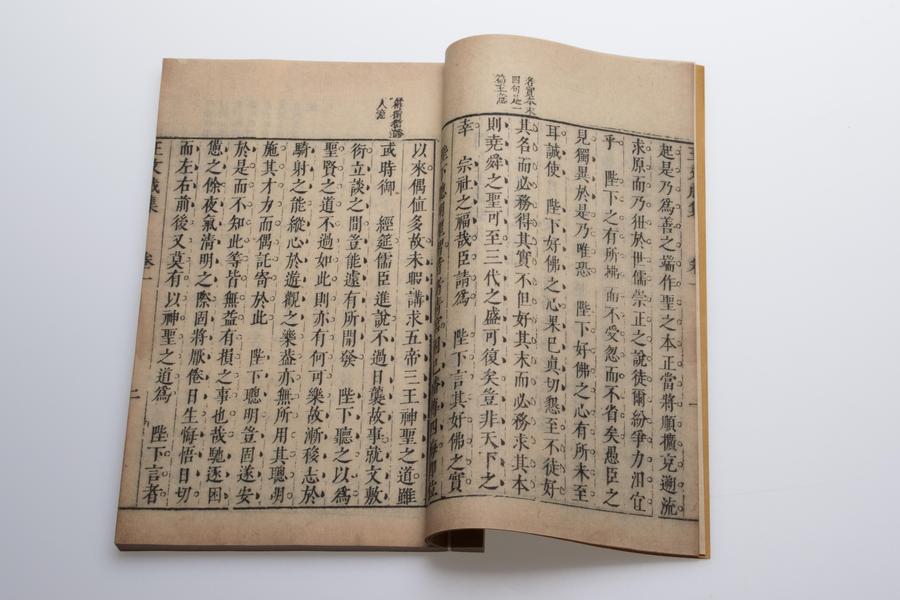 起是乃爲善之端作聖之本正當將順擴充遡流
求原而乃狃於世儒崇正之說徒爾紛爭力沮宜
乎　陛下之有所拂而不受忽而不省矣愚臣之
見獨異於是乃唯恐　陛下好佛之心有所未至
耳誠使　陛下好佛之心果已真切懇至不徒好
其名而必務得其實不但好其末而必務求其本
則堯舜之聖可至三代之盛可復矣豈非天下之
幸　宗社之福哉臣請爲　陛下言其好佛之實
以來偶值多故未暇講求五帝三王神聖之道雖
或時御　經筵儒臣進說不過日襲故事就文敷
衍立談之間豈能遽有所開發　陛下聽之以爲
聖賢之道不過如此則亦有何可樂故漸移志於
騎射之能縱心於遊觀之樂葢亦無所用其聰明
施其才力而偶託寄於此　陛下聰明豈固遂安
於是而不知此等皆無益有損之事也哉馳逐困
憊之餘夜氣清明之際固將厭倦日生悔悟日切
而左右前後又莫有以神聖之道爲　陛下言者
卷一
二